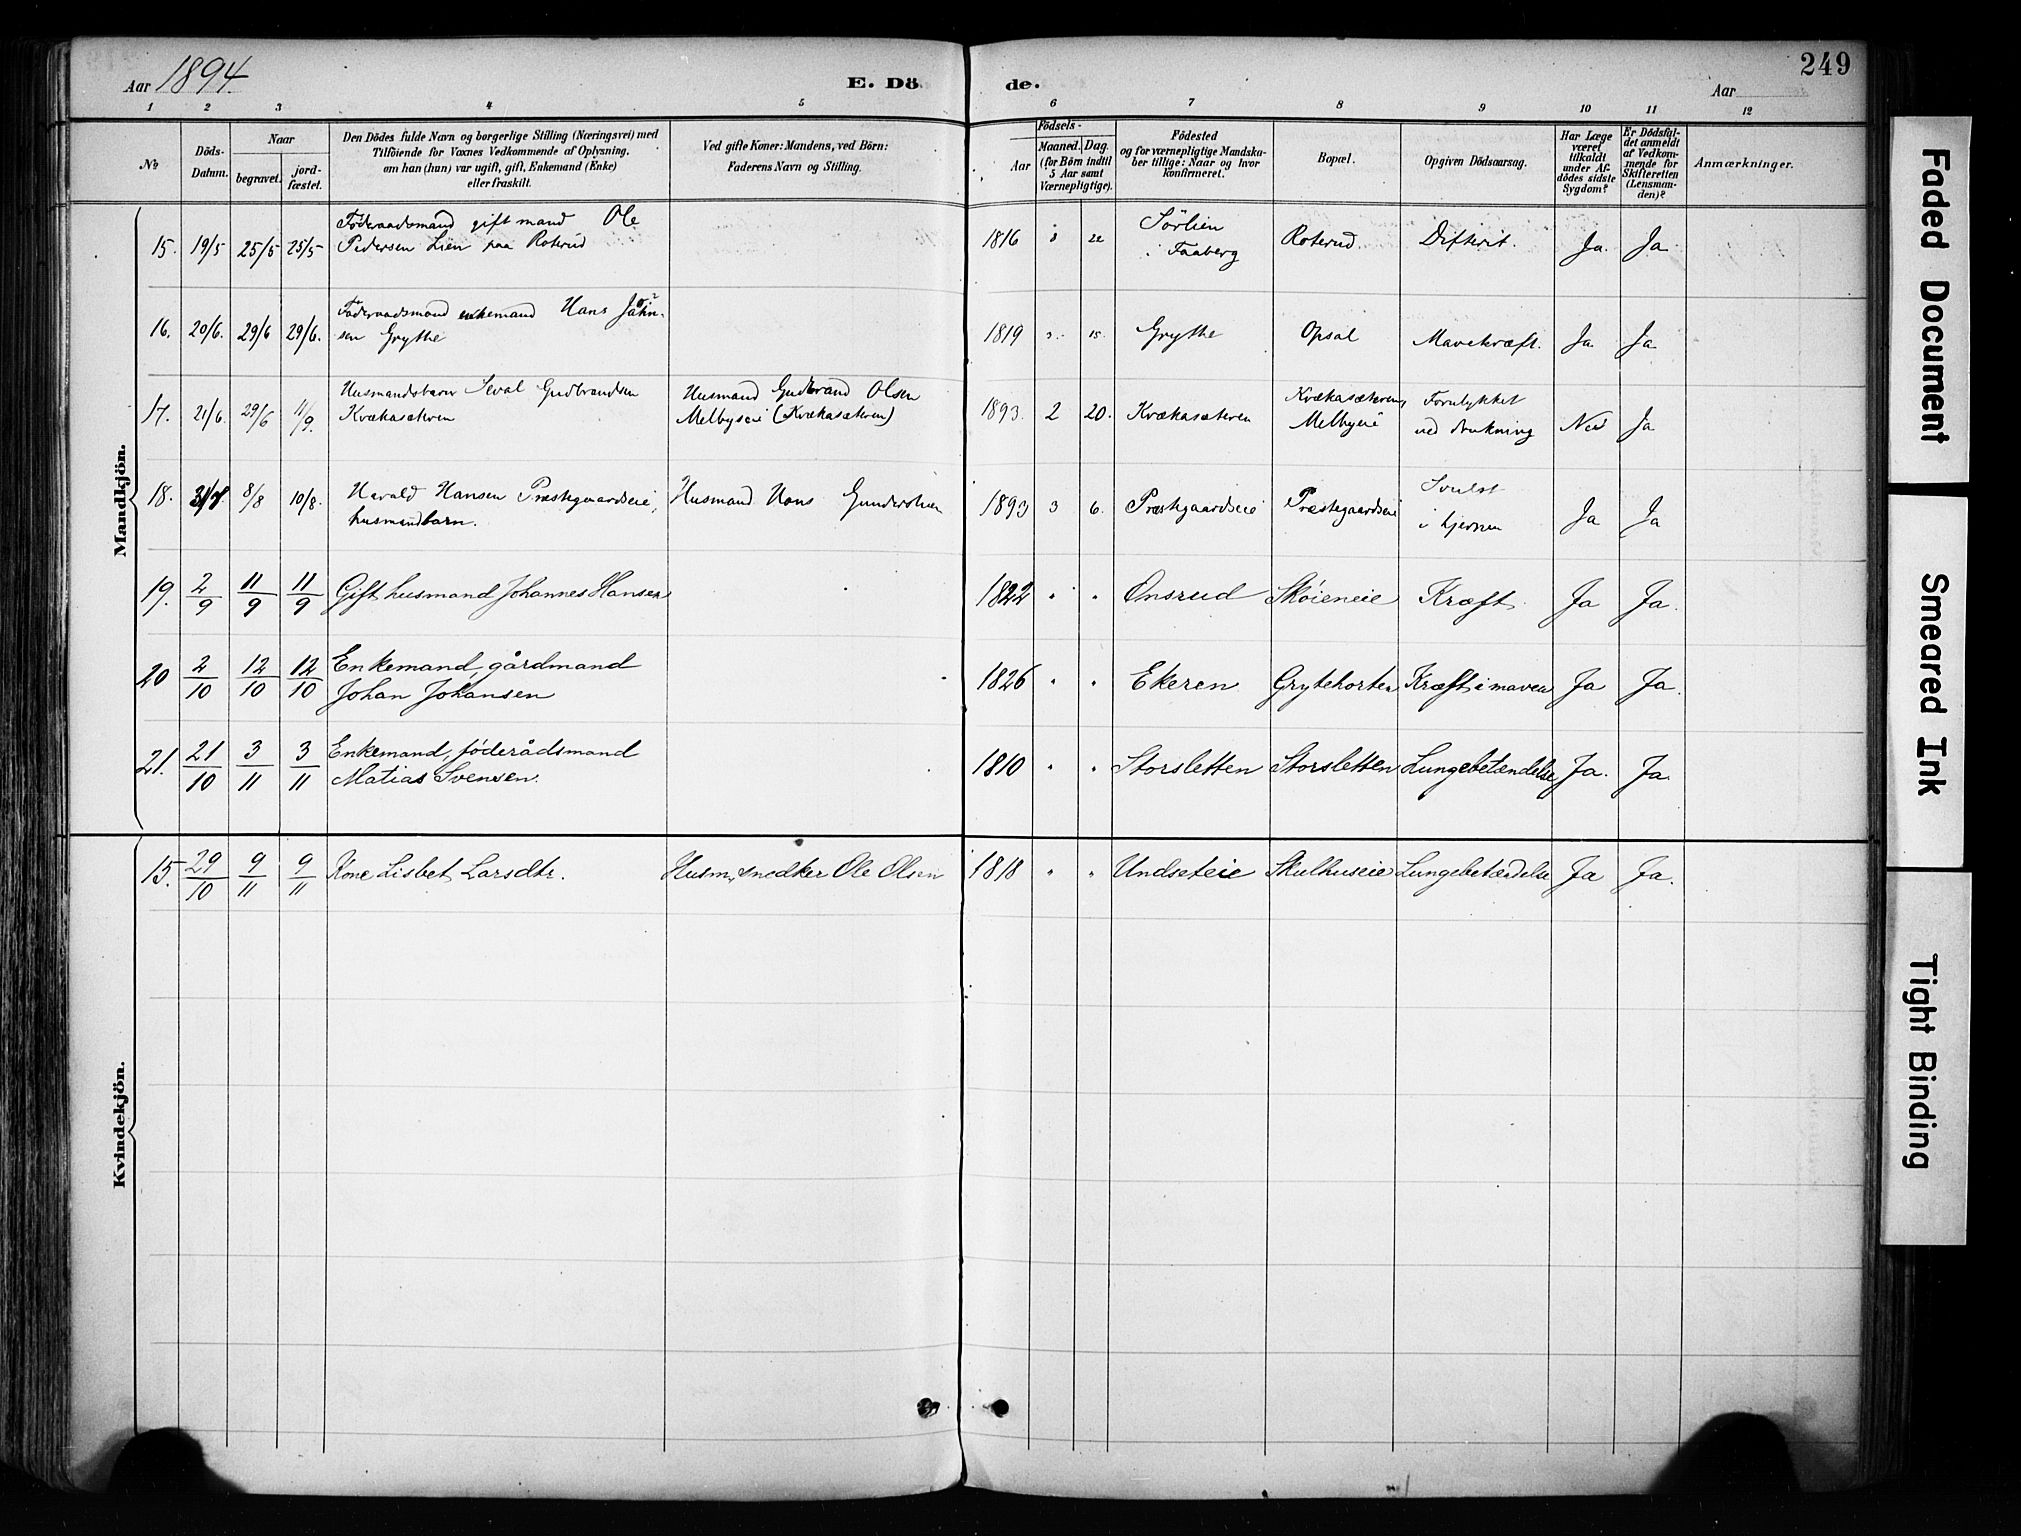 Aar 1894.
E. Dö
de.
Aar
249
1 2 3 4 5 6 7 8 9 10 11 12
No
Döds-
Datum.
Naar
begravet.
jord-
fæstet.
Den Dödes fulde Navn og borgerlige Stilling (Næringsvei) med
Tilföiende for Voxnes Vedkommende af Oplysning.
om han (hun) var ugift, gift, Enkemand (Enke)
eller fraskilt.
Ved gifte Koner: Mandens, ved Börn:
Faderens Navn og Stilling.
Födsels-
Aar
Maaned.
Dag.
(for Børn indtil
5 Aar samt
Værnepligtige).
Födested
og for værnepligtige Mandska-
ber tillige: Naar og hvor
konfirmeret.
Bopæl.
Opgiven Dödsaarsag.
Har Læge
været
tilkaldt
under Af-
dödes sidste
Sygdom?
Er Dödsfal-
det anmeldt
af Vedkom-
mende for
Skifteretten
(Lensman-
den)?
Anmærkninger.
Mandkjön.
15. 19/5 25/5 25/5 Føderaadsmand gift mand Ole
Pedersen Lien paa Roterud
1816 22 Sörlien
i Faaberg
Roterud. Difterit. Ja. Ja
16. 20/6. 29/6 29/6. Føderaadsmand enkemand Hans Johan-
sen Grythe
1819 3. 15. Grythe Opsal Mavekræft. Ja Ja
17. 21/6. 29/6 11/9. Husmandsbarn Seval Gudbrandsen
Kvækasæteren
Husmand Gudbrand Olsen
Melbyeie (Kvækasæteren)
1893. 2 20. Kvækasæteren
Kvækasæteren,
Melbyeie
Forulykket
ved drukning
Nei Ja
18. 31/7 8/8 10/8. Harald Hansen Præstegaardseie,
husmandbarn.
Husmand Hans Gundersen
1893 3 6. Præstegaardseie Præstegaardseie
Svulst
i hjernen
Ja Ja
19. 2/9 11/9 11/9 Gift husmand Johannes Hansen
1822 " " Onsrud Skøieneie Kræft. Ja Ja.
20 2/10 12/10 12/10 Enkemand, gårdmand
Johan Johansen
1826 " " Ekeren Grytehorten Kræft i maven Ja Ja.
21. 21/10 3/11 3/11 Enkemand, føderådsmand
Matias Svensen.
1810 " " Storsletten Storsletten Lungebetændelse Ja. Ja.
Kvindekjön.
15. 29/10 9/11 9/11 Kone Lisbet Larsdtr. Husm, snedker Ole Olsen
1818 " " Undseteie Skulhuseie Lungebetændelse Ja Ja.
Faded Document
Smeared Ink
Tight Binding